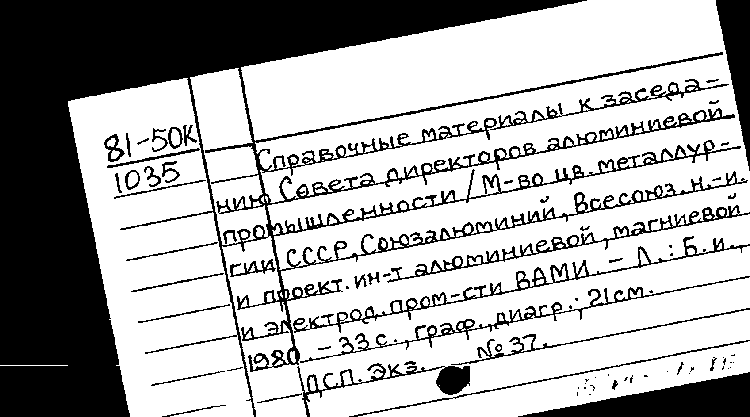 81-50К
1035
Справочные материалы к заседа-
нию Совета директоров алюминиевой
промышленности / М-во цв. металлур-
гии СССР, Союзалюминий, Всесоюз. н.-и.
и проект. ин-т алюминиевой, магниевой
и электрод. пром-сти ВАМИ. - Л. : Б. и.,
1980. - 33 с., граф., диагр.; 21 см.
ДСП. Экз. № 37.